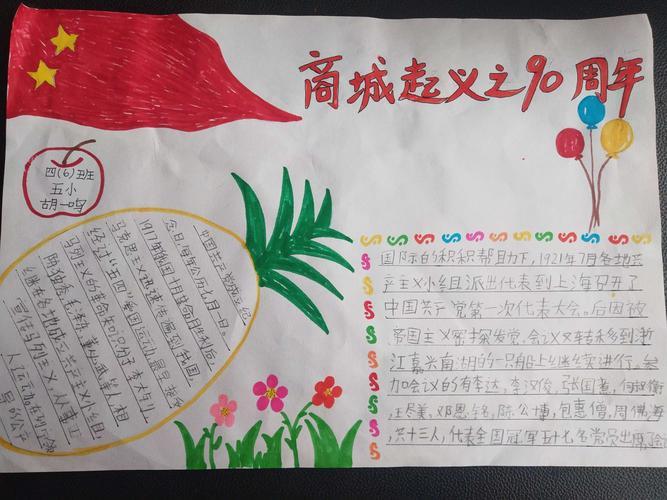 商城起义之90周年
四(6)班
五小
胡一鸣
中国共产党
念日,每年公历七月一日。
1917年俄国十月革命胜利后,
马克思主义迅速传播到我国,
经过“五四”爱国运动,最早接
马列主义的革命知识分子李大钊,
陈独秀,毛泽东,董必武等人相
继在各地成立共产主义小组,
宣传马列主义,从事工
人运动
国际的积积帮助下,1921年7月各地共
产主义小组派出代表到上海召开了
中国共产党第一次代表大会。后因被
帝国主义密探发觉,会议又转移到浙
江嘉兴南湖的一只船上继续进行。参
加会议的有李达,李汉俊,张国焘,何叔衡
王尽美,邓恩铭,陈公博,包惠僧,周佛海
共十三人,代表全国冠军五十七名党员出席了会